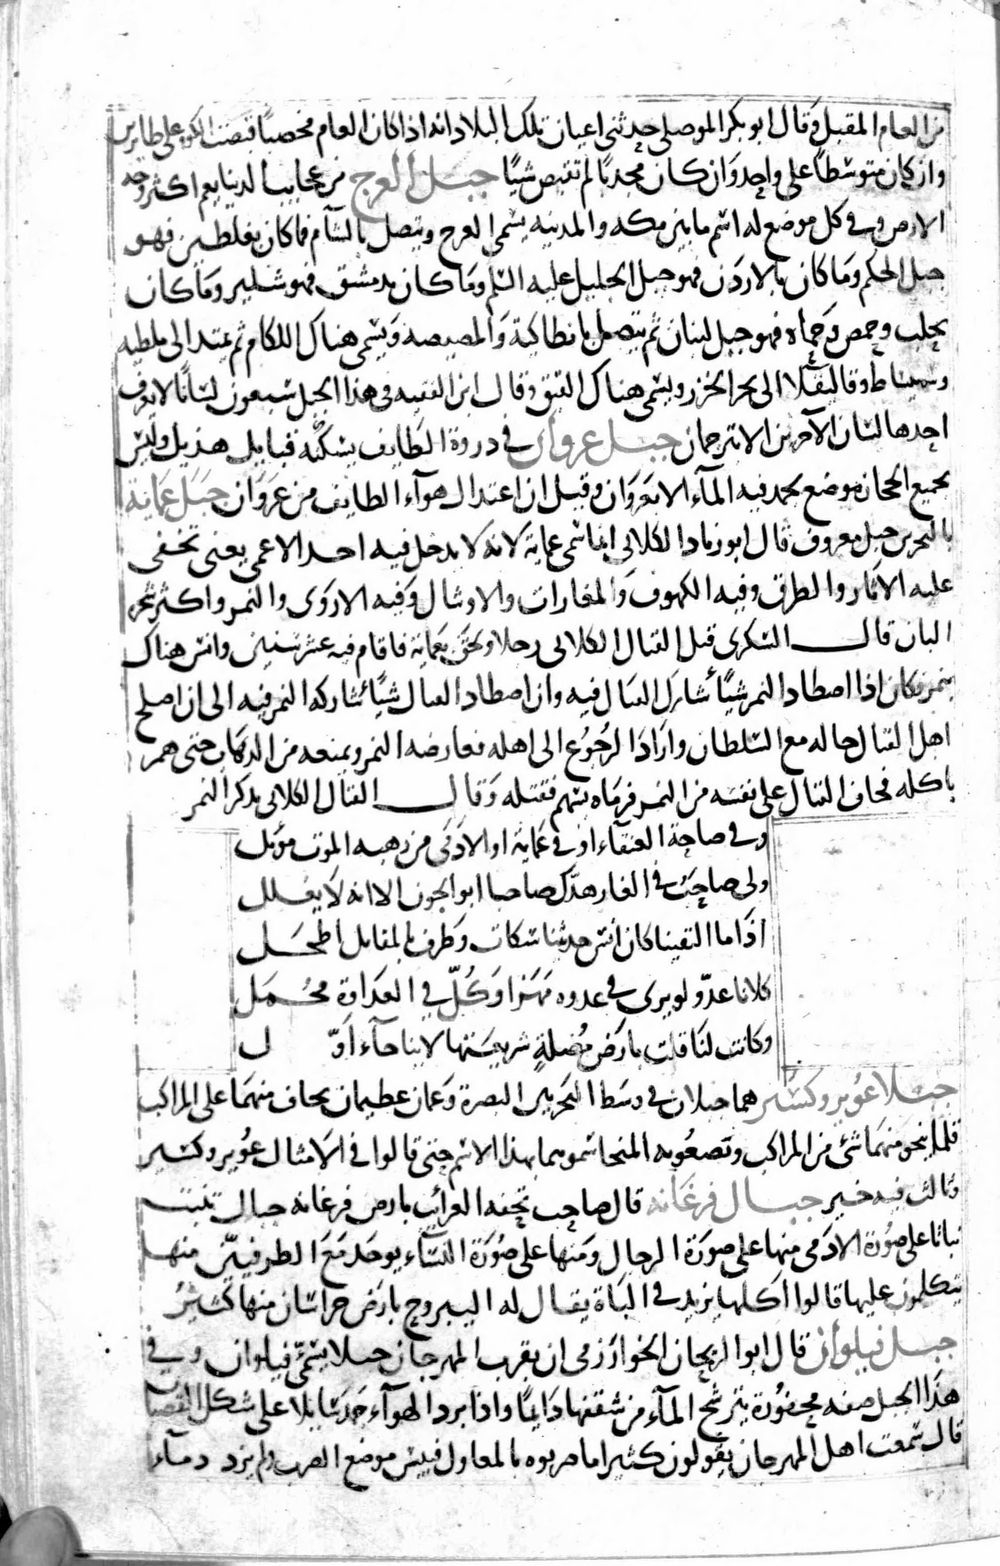 من العام المقبل وقال ابو بكر الموصلي حدثني اعيان تلك البلاد انه اذا كان العام مخصبا قبضت الكوة على طايرين
وان كان متوسطا على واحد وان كان مجدبا لم تقبض شيئا جبل العرج من عجايب الدنيا يعم اكثر وجه
الارض وفي كل موضع له اسم ما بين مكه والمدينه يسمى العرج ويتصل بالشام فما كان بفلسطين فهو
جبل الحكم وما كان بالاردن فهو جبل الجليل عليه السلم وما كان بدمشق فهو شلير وما كان
بحلب وحمص وحماه فهو جبل لبنان ثم يتصل بانطاكية والمصيصه ويسمى هناك اللكام ثم يمتد الى ملطيه
وسميساط وقاليقلا الى بحر الخزر ويسمى هناك القبق وقال ابن الفقيه في هذا الجبل سبعون لسانا لا يعرف
احدها لسان الآخرين الا بترجمان جبل غروان في دروة الطايف يسكنه قبايل هذيل وليس
بجميع الحجاز موضع يجمد فيه المآء الا بغروان وقيل ان اعتدال هوآء الطايف من غروان جبل عماية
بالبحرين جبل معروف قال ابو زياد الكلابي انما سمي عماية لانه لا يدخل فيه احد الا عمي يعني تخفى
عليه الآثار والطرق وفيه الكهوف والمغارات والاوشال وفيه الاروى والنمر واكثر شجره
البان قال السكري قتل القتال الكلابي رجلا ولحق بعماية فاقام فيه عشر سنين وانس هناك
بنمر فكان اذا اصطاد النمر شيئا شارك القتال فيه وان اصطاد القتال شيئا شاركه النمر فيه الى ان اصلح
اهل القتال حاله مع السلطان واراد الرجوع الى اهله فعارضه النمر ويمنعه من الذهاب حتى هم
باكله فخاف القتال على نفسه من النمر فرماه بسهم فقتله وقال القتال الكلابي يذكر النمر
وفي صاحة العنقاء او في عماية او الادمى من رهبه الموت موئل
ولي صاحب في الغار هدك صاحبا ابو الجون الا انه لا يعلل
اذا ما التقينا كان انس حديثنا سكات وطرف بالمقابل اطحل
كلانا عدو لو يرى في عدوه مهزا وكل في العداوة مجمل
وكانت لنا قلت بارض مضلة شريعتنا لاينا جآء اول
جبلا عوير وكسير هما جبلان في وسط البحر بين البصرة وعمان عظيمان يخاف منهما على المراكب
فلما ينجو منهما شئ من المراكب وتصعوبه المنجا سموهما بهذا الاسم حتى قالوا في الامثال عوير وكسير
وثالث فيه خير جبال فرغانه قال صاحب تحفه الغرايب بارض فرغانه جبال تنبت
نباتا على صورة الادمي منها على صورة الرجال ومنها على صورة النسآء يوجد مع الطرفيين منها
يتكلمون عليها قالوا اكلها يزيد في الباة يقال له اليبروح بارض خراسان منها كثير
جبل فيلوان قال ابو الريحان الخوارزمي ان بقرب المهرجان جبلا يسمى فيلوان وفي
هذا الجبل صفه محفورة يترشح المآء من شقفها دايما واذا برد الهوآء جمد متدليا على شكل القضبان
قال سمعت اهل المهرجان يقولون كثيرا ما ضربوه بالمعاول فيبس موضع الضرب ولم يزد دمآء